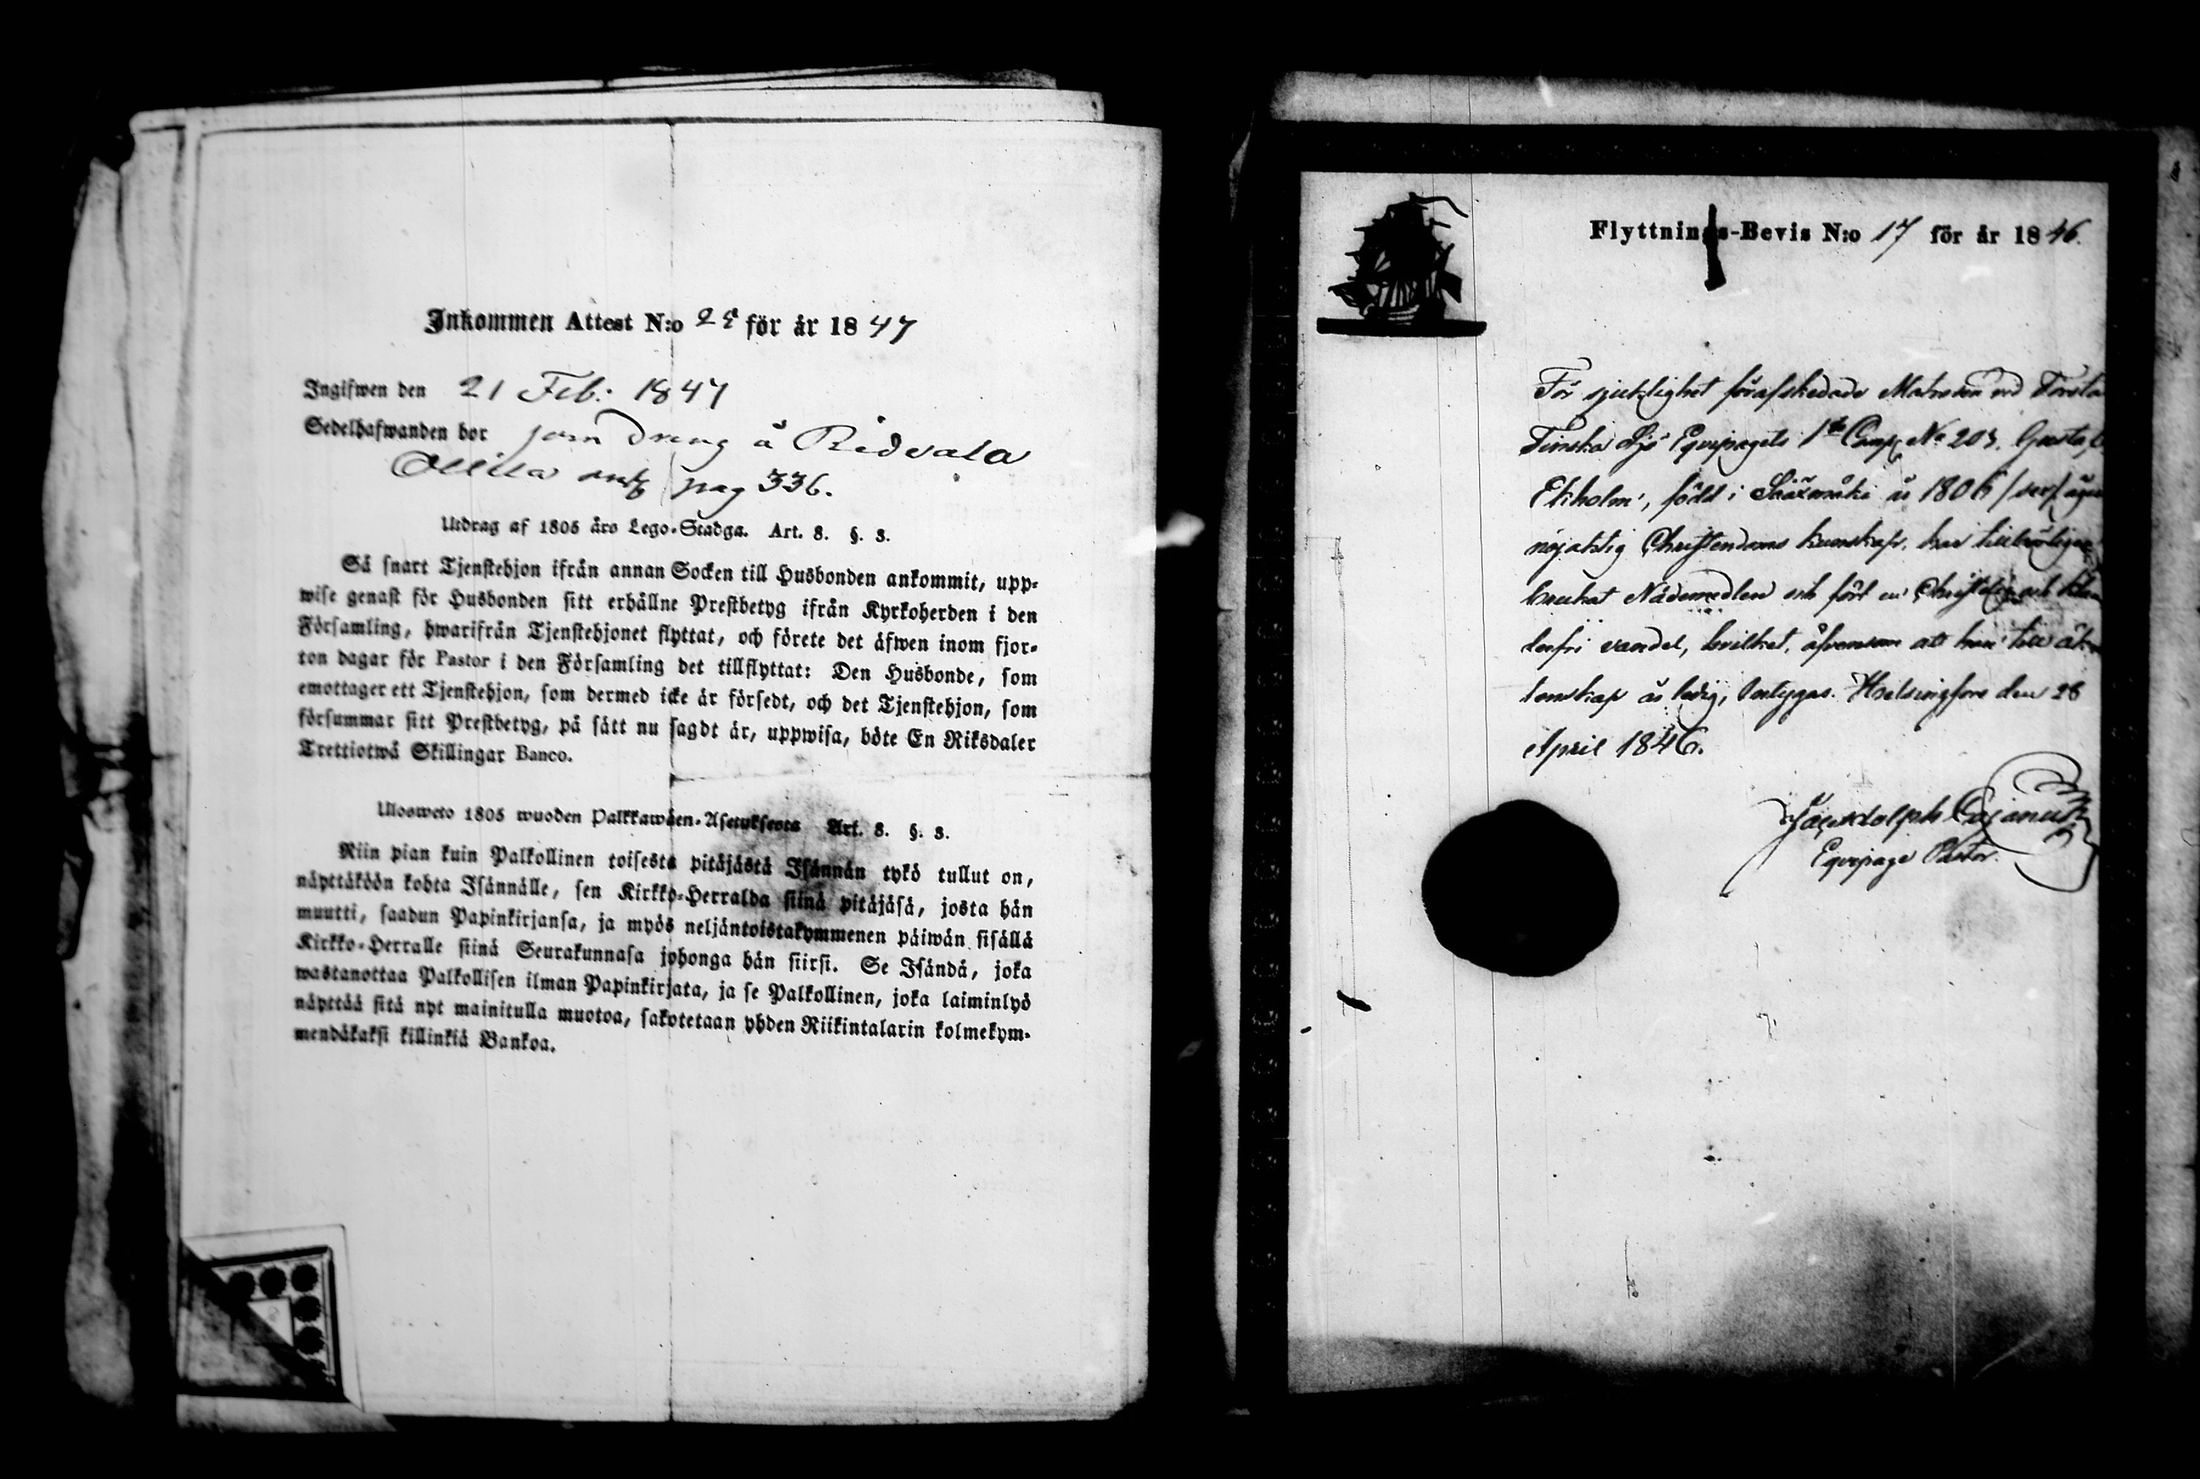 Inkommen Attest N:o för år 1847
Ingifwen den 21 Feb. 1847
Sedelhafwanden bor som dreng å Ridvala
Ollila pag 336.
Utdrag af 1805 års Lego-Stadga. Art. 8. §. 3.
Så snart Tjenstehjon ifrån annan Socken till Husbonden ankommit, upp-
wise genast för Husbonden sitt erhållne Prestbetyg ifrån Kyrkoherden i den
Församling, hwarifrån Tjenstehjonet flyttat, och förete det äfwen inom fjor-
ton dagar för Pastor i den Församling det tillflyttat: Den Husbonde, som
emottager ett Tjenstehjon, som dermed icke är försedt, och det Tjenstehjon, som
försummar sitt Prestbetyg, på sätt nu sagdt är, uppwisa, böte En Riksdaler
Trettiotwå Skillingar Banco.
Ulosweto 1805 wuoden Palkkawäen-Asetuksesta Art. 8. §. 3.
Niin pian kuin Palkollinen toisesta pitäjästä Isännän tykö tullut on,
näyttäköön kohta Isännälle, sen Kirkko-Herralda siinä pitäjäsä, josta hän
muutti, saadun Papinkirjansa, ja myös neljäntoistakymmenen päiwän sisällä
Kirkko-Herralle siinä Seurakunnasa johonga hän siirsi. Se Isändä, joka
wastanottaa Palkollisen ilman Papinkirjata, ja se Palkollinen, joka laiminlyö
näyttää sitä nyt mainitulla muotoa, sakotetaan yhden Riikintalarin kolmekym-
mendäkaksi killinkiä Bankoa.
Flyttnings-Bevis N:o 17 för år 1846.
För sjuklighet förafskedade Matrosen vid Första
Finska Sjö Equipagets 1sta Comp. No 203. Gustaf
Ekholm, född i Sääxmäki år 1806 /sex/ äger
nöjaktig Christendoms kunskap, har tillbörligen
brukat Nådemedlen och fört en Christelig och klan-
derfri vandel, hvilket, äfvensom att han till äk-
tenskap är ledig, betygas. Helsingfors den 28
April 1846.
Adolph Cajanus
Equipage Pastor.